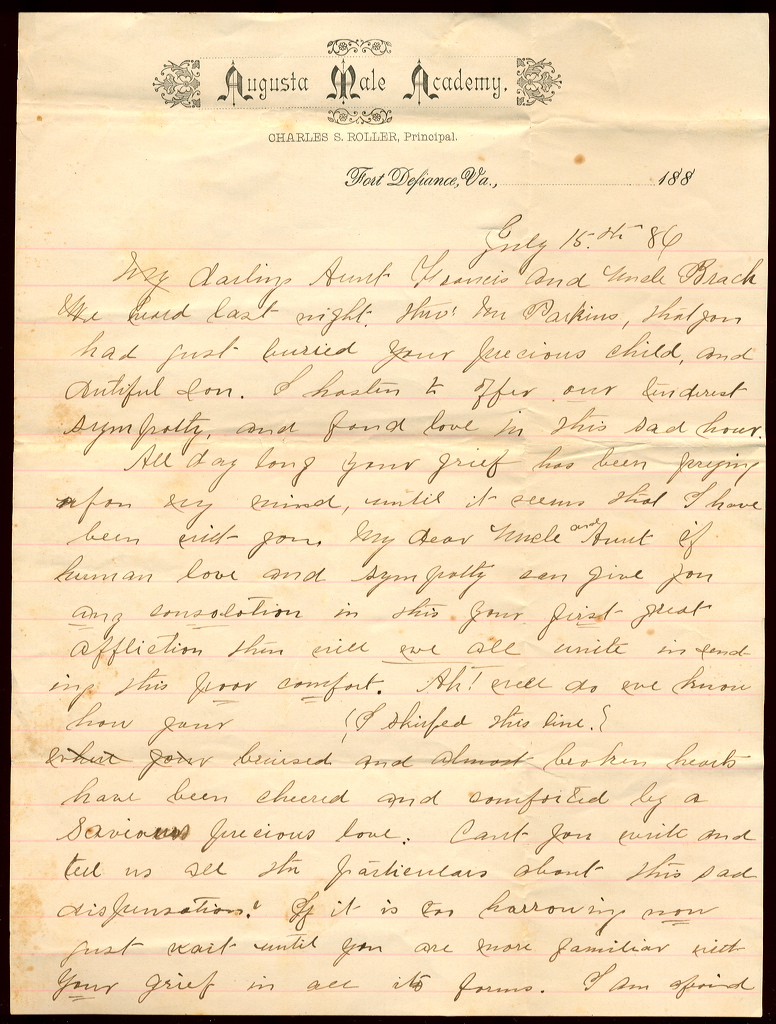 Augusta Male Academy.
CHARLES S. ROLLER, Principal.
Fort Defiance, Va., 188
July 15th 86
My darling Aunt Francis and Uncle Brack
We heard last night, thro' Mr Parkins, that you
had just buried your precious child, and
dutiful son. I hasten to offer our tenderest
sympathy, and fond love in this sad hour.
All day long your grief has been preying
upon my mind, until it seems that I have
been with you. My dear Uncle and Aunt if
human love and sympathy can give you
any consolation in this your first great
affliction then will we all unite in send-
ing this poor comfort. Ah! well do we know
how your (I skipped this line.)
what your bruised and almost broken hearts
have been cheered and comforted by a
Saviours precious love. Cant you write and
tell us all the particulars about this sad
dispensation? If it is too harrowing now
just wait until you are more familiar with
your grief in all its forms. I am afraid